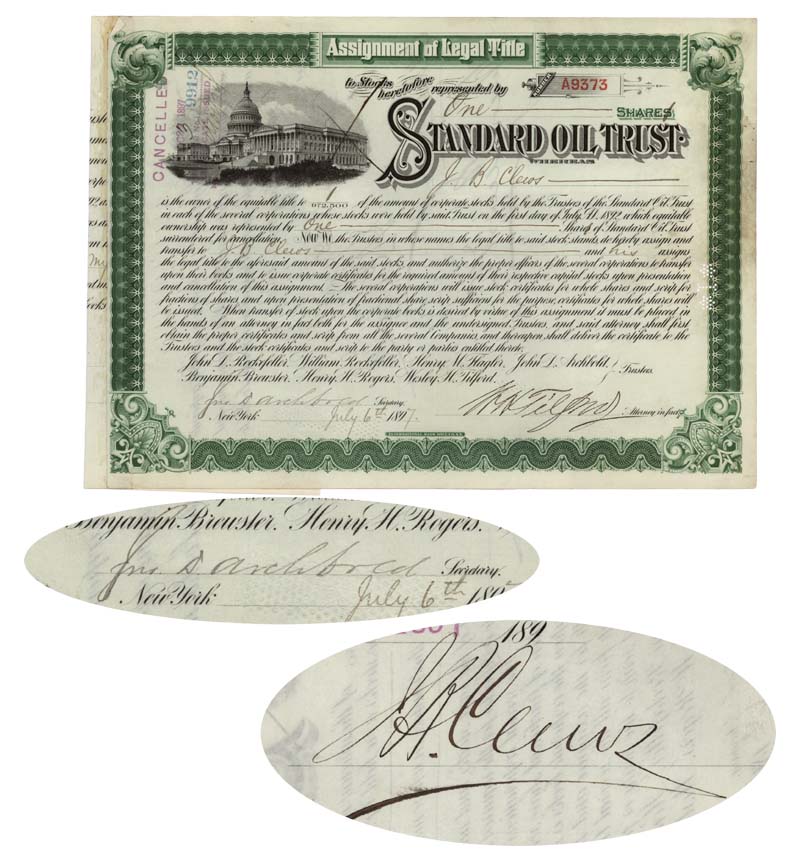 Assignment of Legal Title
to Stocks heretofore represented by
A9373
One SHARES
STANDARD OIL TRUST
WHEREAS
J. B. Clews
CANCELLED
9912
is the owner of the equitable title to 1/972,500 of the amount of corporate stocks held by the Trustees of the Standard Oil Trust
in each of the several corporations whose stocks were held by said Trust on the first day of July, A. 1892, which equitable
ownership was represented by One Share of Standard Oil Trust
surrendered for cancellation. Now We the Trustees in whose names the legal title to said stock stands, do hereby assign and
transfer to J B Clews and his assigns
the legal title to the aforesaid amount of the said stocks and authorize the proper officers of the several corporations to transfer
upon their books and to issue corporate certificates for the required amount of their respective capital stocks upon presentation
and cancellation of this assignment. The several corporations will issue stock certificates for whole shares and scrip for
fractions of shares and upon presentation of fractional share scrip sufficient for the purpose, certificates for whole shares will
be issued. When transfer of stock upon the corporate books is desired by virtue of this assignment it must be placed in
the hands of an attorney in fact both for the assignee and the undersigned Trustees, and said attorney shall first
obtain the proper certificates and scrip from all the several Companies and thereupon shall deliver the certificate to the
Trustees and the stock certificates and scrip to the party or parties entitled thereto.
John D. Rockefeller, William Rockefeller, Henry M. Flagler, John D. Archbold,
Benjamin Brewster, Henry H. Rogers, Wesley H. Tilford. Trustees.
Jno. D. Archbold Secretary.
New York July 6th 1897. W H Tilford Attorney in fact
Benjamin Brewster. Henry H. Rogers.
Jno. D. Archbold Secretary.
New York July 6th 189
189
J. B. Clews